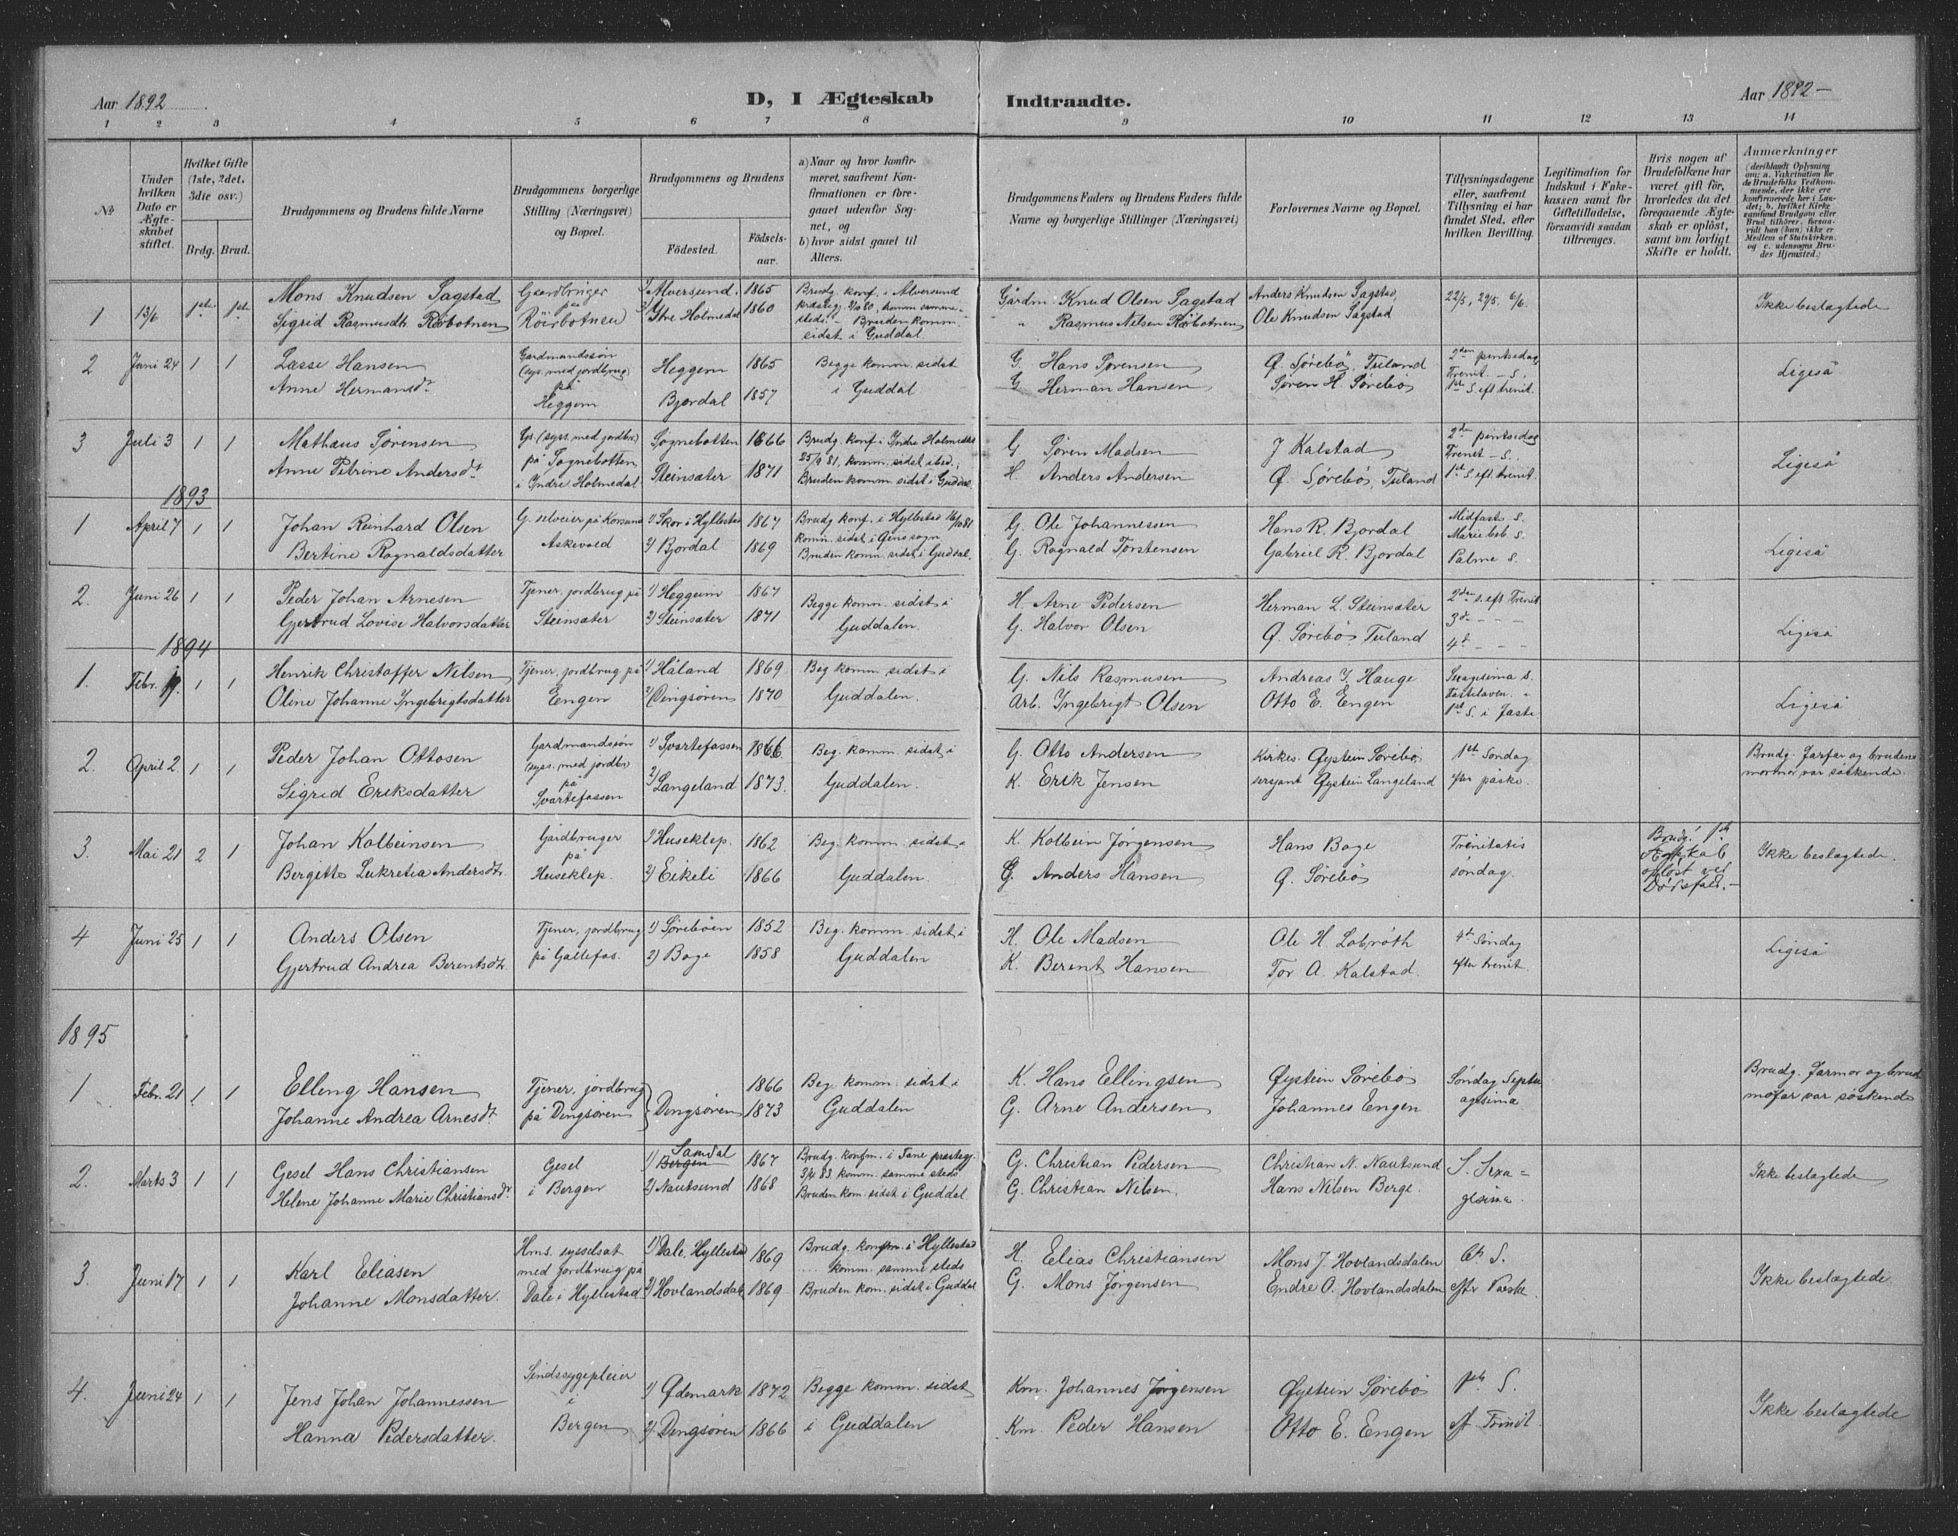 Aar 1892
D, I Ægteskab Indtraadte.
Aar 1892 –
1 2 3 4 5 6 7 8 9 10 11 12 13 14
No.
Under hvilken Dato er Ægteskabet stiftet.
Hvilket Gifte (1ste, 2det, 3die osv.)
Brdg. Brud.
Brudgommens og Brudens fulde Navne
Brudgommens borgerlige Stilling (Næringsvei) og Bopæl.
Brudgommens og Brudens
Födested.
Födselsaar.
a) Naar og hvor konfirmeret, saafremt Konfirmationen er foregaaet udenfor Sognet, og
b) hvor sidst gaaet til Alters.
Brudgommens Faders og Brudens Faders fulde Navne og borgerlige Stillinger (Næringsvei)
Forlovernes Navne og Bopæl.
Tillysningsdagene eller, saafremt Tillysning ei har fundet Sted, efter hvilken Bevilling.
Legitimation for Indskud i Enkekassen samt for Giftetilladelse, forsaavidt saadan tiltrænges.
Hvis nogen af Brudefolkene har været gift för, hvorledes da det foregaaende Ægteskab er oplöst, samt om lovligt Skifte er holdt.
Anmærkninger
(deriblandt Oplysning om: a. Vakcination for de Brudefolks Vedkommende, der ikke ere konfirmerede her i Landet; b. hvilket Kirkesamfund Brudgom eller Brud tilhörer, forsaavidt han (hun) ikke er Medlem af Statskirken, og c. udensogns Brudes Hjemsted.)
1 13/6 1ste 1ste Mons Knudsen Sagstad Gaardbruger på Röirbotnen 1) Alversund. 1865 Brudg. konf. i Alversund 3/10 80, komm. sammesteds. Bruden komm. sidst i Guddal. Gårdm. Knud Olsen Sagstad Anders Knudsen Sagstad, 22/5, 29/5, 6/6. Ikke beslægtede
Sigrid Rasmusdtr Rörbotnen 2) Ytre Holmedal 1860 " Rasmus Nilsen Rörbotnen Ole Knudsen Sagstad
2 Juni 24 1 1 Lasse Hansen Gardmandssön (sys. med jordbrug) på Heggem Heggem 1865 Begge komm. sidst i Guddal G. Hans Sörensen Ø. Sørebö, Tuland 2den pintsedag Trenit – S. 1ste S. eft trenit. Ligeså
Anne Hermansdtr Bjordal 1857 G Herman Hansen Sören H. Sørebö
3 Juli 3 1 1 Mathæus Sørensen Gs. (syss. med jordbr.) på Sognebotten i Yndre Holmedal Sognebotten 1866 Brudg. konf. i Yndre Holmedal 25/9 81, komm. sidst ibed.; Bruden komm. sidst i Guddal. G Sören Madsen J Kalstad 2den pintsedag Trenit – S. 1ste S. eft. trenit. Ligeså
Anne Petrine Andersdtr Steinsæter 1871 H. Anders Andersen Ø. Sørebö, Tuland
1893
1 April 7 1 1 Johan Reinhard Olsen G. selveier på Korsund Askevold 1) Skor i Hyllestad 1867 Brudg konf. i Hyllestad 16/10 81 komm. sidst i Gens sogn Bruden komm. sidst i Guddal. G. Ole Johannessen Hans R. Bjordal Midfaste S. Marie beb. S. Palme S Ligeså
Bertine Ragnaldsdatter 2) Bjordal 1869 G. Ragnald Torstensen Gabriel R. Bjordal
2. Juni 26 1 1 Peder Johan Arnesen Tjener, jordbrug på Steinsæter 1) Heggeim 1867 Begge komm. sidst i Guddalen. H. Arne Pedersen Herman L. Steinsæter 2den s. eft Trenit 3d – – – 4d – – – Ligeså
Gjertrud Lovise Halvorsdatter 2) Steinsæter 1871 G. Halvor Olsen Ø. Sørebö Tuland
1894
1. Febr. 1 1 Henrik Christoffer Nilsen Tjener, jordbrug på Engen 1) Håland 1869. Beg komm. sidst i Guddalen. G. Nils Rasmusen Andreas J. Hauge Sexagesima S. Fastelaven " 1ste S. i Faste Ligeså
Oline Johanne Yngebrigtsdatter 2) Dingsören 1870 Arb. Yngebrigt Olsen Otto E. Engen
2. April 2 1 1 Peder Johan Ottosen Gardmandssön syss. med jordbr) på Svartefossen 1) Svartefossen 1866 Beg. komm. sidst i Guddalen. G. Otto Andersen Kirkes. Øystein Sörebö 1ste Söndag efter påske. Brudg. farfar og brudens mormor var söskende.
Sigrid Eriksdatter 2) Langeland 1873. K. Erik Jensen sersjant Øystein Langeland
3. Mai 21 2 1 Johan Kolbeinsen Gårdbruger på Huseklep. 1) Huseklep. 1862 Beg. komm. sidst i Guddalen. K. Kolbein Jörgensen Hans Bage Trinitatis söndag. Brudg. 1ste Ægtskab opløst ved Dødsfald. – Ikke beslægtede.
Bergitte Lukretia Andersdtr 2) Eikeli 1866 G. Anders Hansen Ø. Sörebö
4 Juni 25 1 1 Anders Olsen Tjener, jordbrug på Gallefos. 1) Sörebøen 1852 Beg. komm. sidst i Guddalen H. Ole Madsen Ole H. Løbröth 4de Söndag efter trenit. Ligeså
Gjertrud Andrea Berentsdtr. 2) Bage 1858 K. Berent Hansen Tor A. Kalstad.
1895
1 Febr. 21 1 1 Elling Hansen Tjener, jordbrug på Dengsören Dengsören 1866 Beg. komm. sidst i Guddalen K. Hans Ellingsen Øystein Sörebö Söndag Septuagesima Brudg. farmor og brud. mofar var söskende
Johanne Andrea Arnesdtr 1873 G. Arne Andersen Johannes Engen
2. Marts 3 1 1 Gesel Hans Christiansen Gesel i Bergen 1) Bergen Samdal 1867 Brudg. konfm. i Fane præsteg. 3/4 83 komm. samme steds Bruden kom. sidst i Guddal G. Christian Pedersen Christian N. Nautsund S. Sexagesima. Ikke beslægtede
Helene Johanne Marie Christiansdtr 2) Nautsund 1868 G. Christian Nilsen. Hans Nilsen Berge.
3. Juni 17 1 1 Karl Eliasen Hms. sysselsat med jordbrug på Dale i Hyllestad 1) Dale, Hyllestad 1869 Brudg. konfm. i Hyllestad ..... komm. samme steds Bruden kom. sidst i Guddal H. Elias Christiansen Mons J. Hovlandsdalen 6te S. eftr Paaske. Ikke beslægtede
Johanne Monsdatter. 2) Hovlandsdal 1869. G. Mons Jörgensen Endre O. Hovlandsdalen
4. Juni 24 1 1 Jens Johan Johannessen Sindssygepleier i Bergen 1) Ødemark 1872 Begge komm. sidst i Guddalen Km. Johannes Jørgensen Øystein Sörebö 1ste S. eft Trinit. Ikke beslægtede
Hanna Pedersdatter. 2) Dengsören 1866 Km Peder Hansen Otto E. Engen